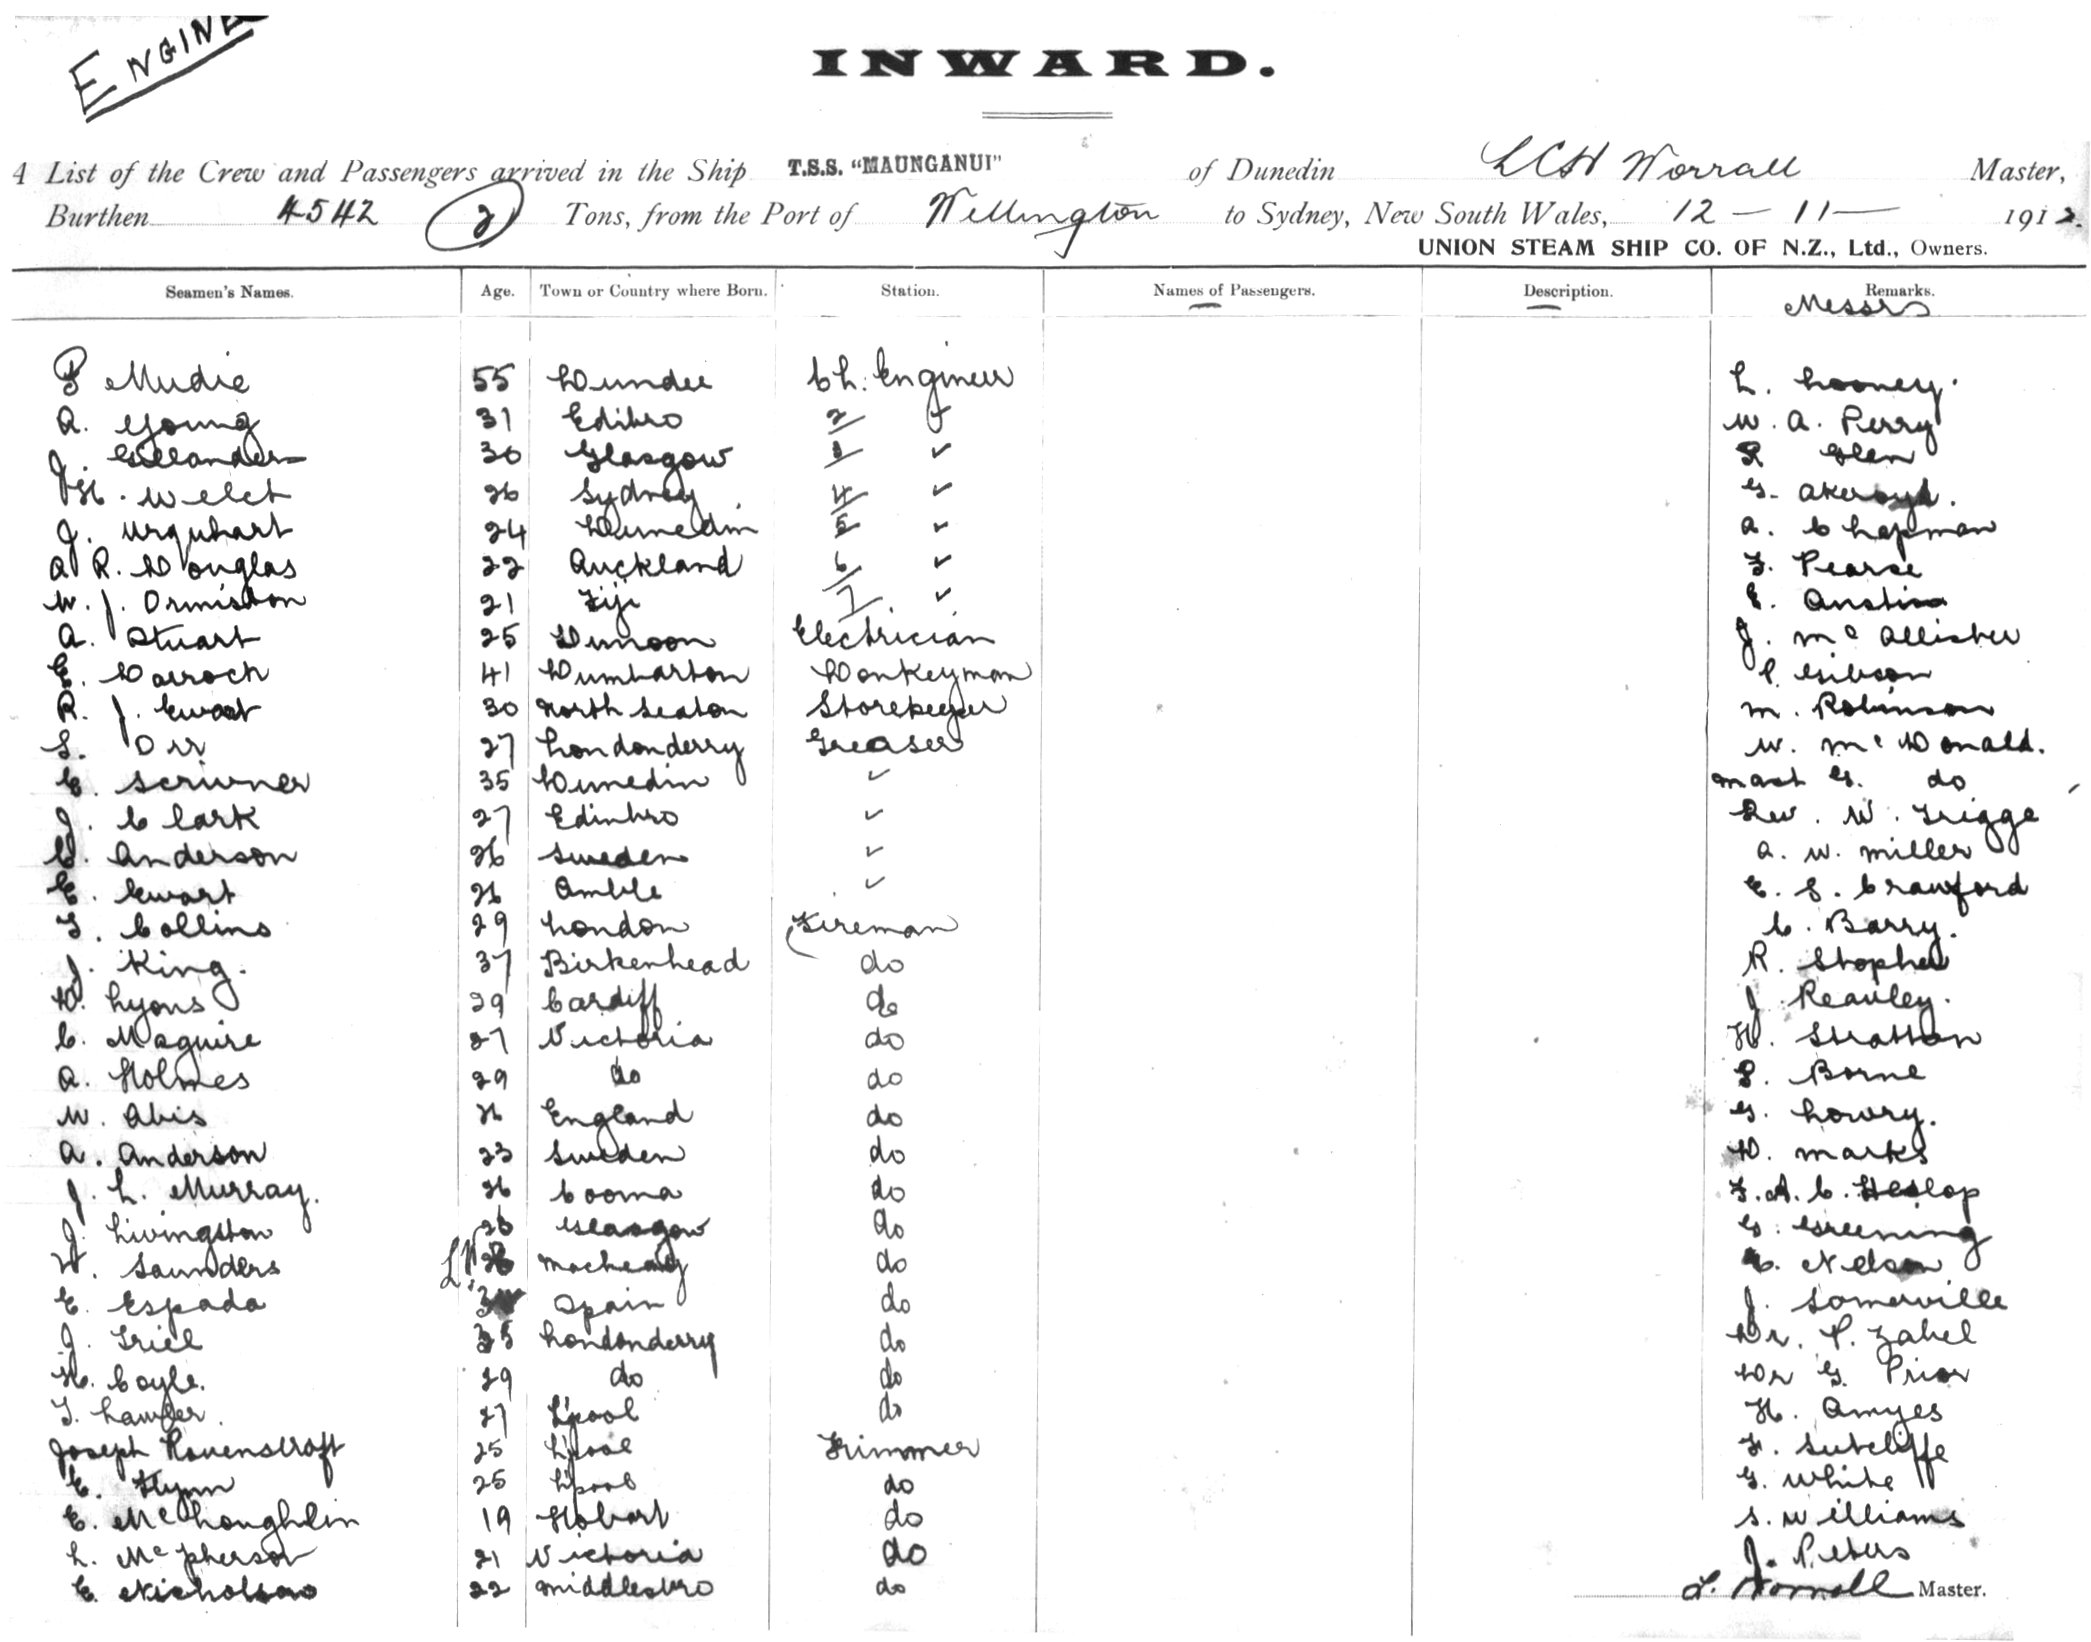 ENGINE
INWARD.
A List of the Crew and Passengers arrived in the Ship T.S.S. "MAUNGANUI" of Dunedin LCH Worrall Master,
Burthen 4542 (2) Tons, from the Port of Wellington to Sydney, New South Wales, 12 – 11 – 1912.
UNION STEAM SHIP CO. OF N.Z., Ltd., Owners.
Seamen's Names. Age. Town or Country where Born. Station. Names of Passengers. Description. Remarks.
Messrs
P Mudie 55 Dundee Ch. Engineer L. Looney.
A. Young 31 Edibro 2 " W. A. Perry
J. Gillanders 30 Glasgow 3 " R Glen
H. Welch 26 Sydney 4 " G. Akeroyd.
J. Urquhart 24 Dunedin 5 " A. Chapman
A R. Douglas 22 Auckland 6 " F. Pearse
W. J. Ormiston 21 Fiji 7 " E. Anstiss
A. Stuart 25 Dunoon Electrician J. McAllister
E. Darroch 41 Dumbarton Donkeyman P. Gibson
R. J. Ewart 30 North Seaton Storekeeper M. Robinson
S. Orr 27 Londonderry Greaser W. McDonald.
E. Scrivner 35 Dunedin " Mast G. do
J. Clark 27 Edinbro " Rev. W. Trigge
C. Anderson 26 Sweden " A. W. Miller
E. Ewart 26 Amble " E. S. Crawford
T. Collins 29 London Fireman C. Barry.
J. King. 37 Birkenhead do R. Stopher
D. Lyons 29 Cardiff do J Reauley.
C. Maguire 27 Victoria do H. Stratton
A. Holmes 29 do do S. Borne
W. Abis 26 England do G. Lowry.
A. Anderson 23 Sweden do D. Marks
J. L. Murray. 26 Cooma do F. A. C. Heslop
J. Livingston 26 Glasgow do G. Greening
W. Saunders do E. Nelson
E. Espada Spain do J. Somerville
J. Friel 35 Londonderry do Dr. P. Zabel
H. Coyle. 29 do do Dr G. Prior
T. Lawler. 27 L'pool do H. Amyes
Joseph Ravenscroft 25 L'pool Trimmer F. Sutcliffe
E. Flynn 25 L'pool do G. White
E. McLoughlin 19 Hobart do S. Williams
L. McPherson 21 Victoria do J. Peters
E. Nicholson 22 Middlesbro do L. Worrall Master.